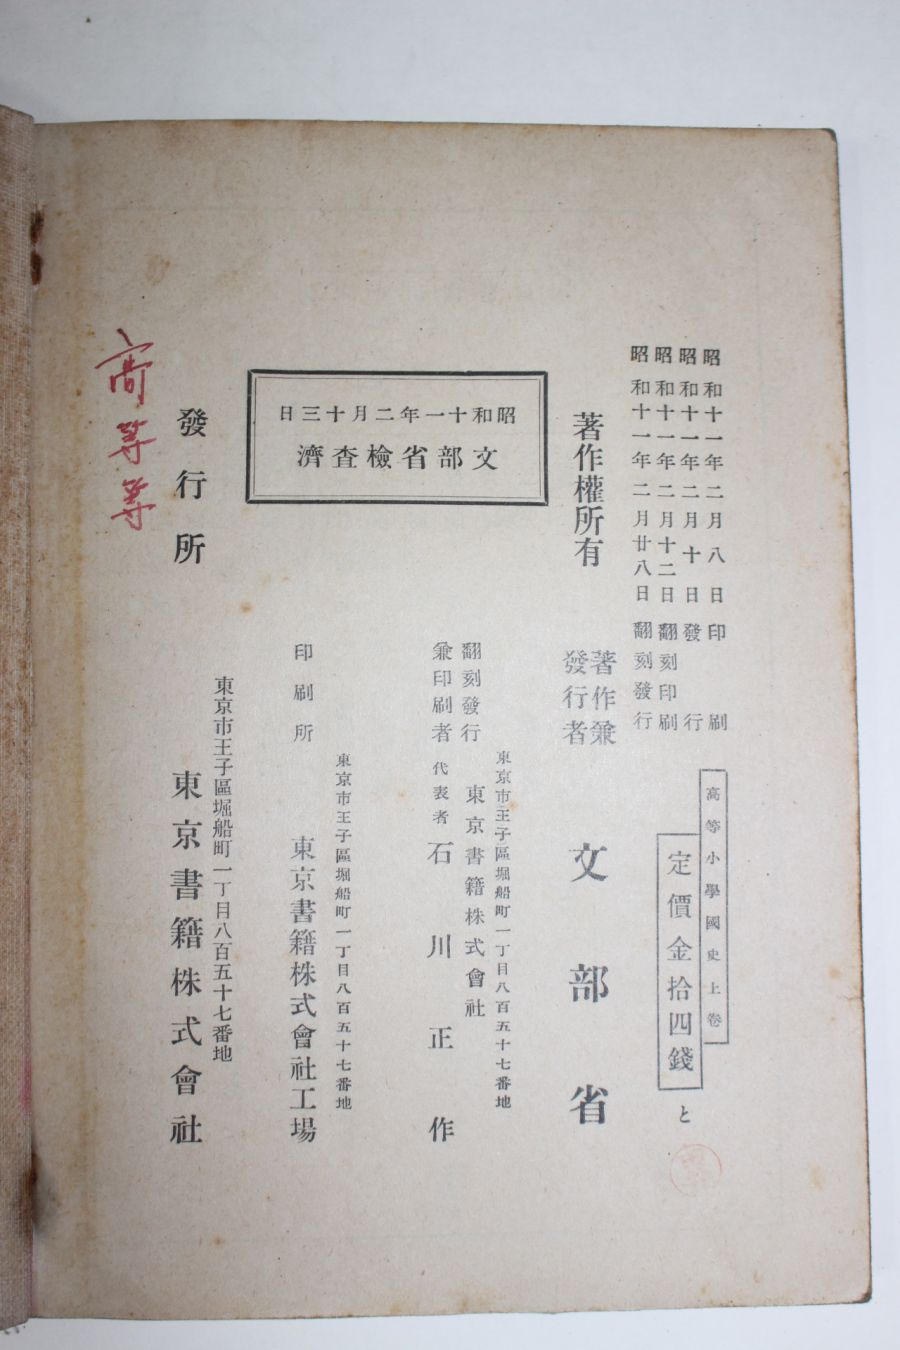 昭和十一年二月八日印刷
昭和十一年二月十日發行
昭和十一年二月十二日翻刻印刷
昭和十一年二月廿八日翻刻發行
高等小學國史上卷
定價金拾四錢
と
著作權所有
著作兼
發行者
文部省
昭和十一年二月十三日
文部省檢查濟
東京市王子區堀船町一丁目八百五十七番地
翻刻發行
兼印刷者
東京書籍株式會社
代表者 石川正作
東京市王子區堀船町一丁目八百五十七番地
印刷所
東京書籍株式會社工場
東京市王子區堀船町一丁目八百五十七番地
發行所
東京書籍株式會社